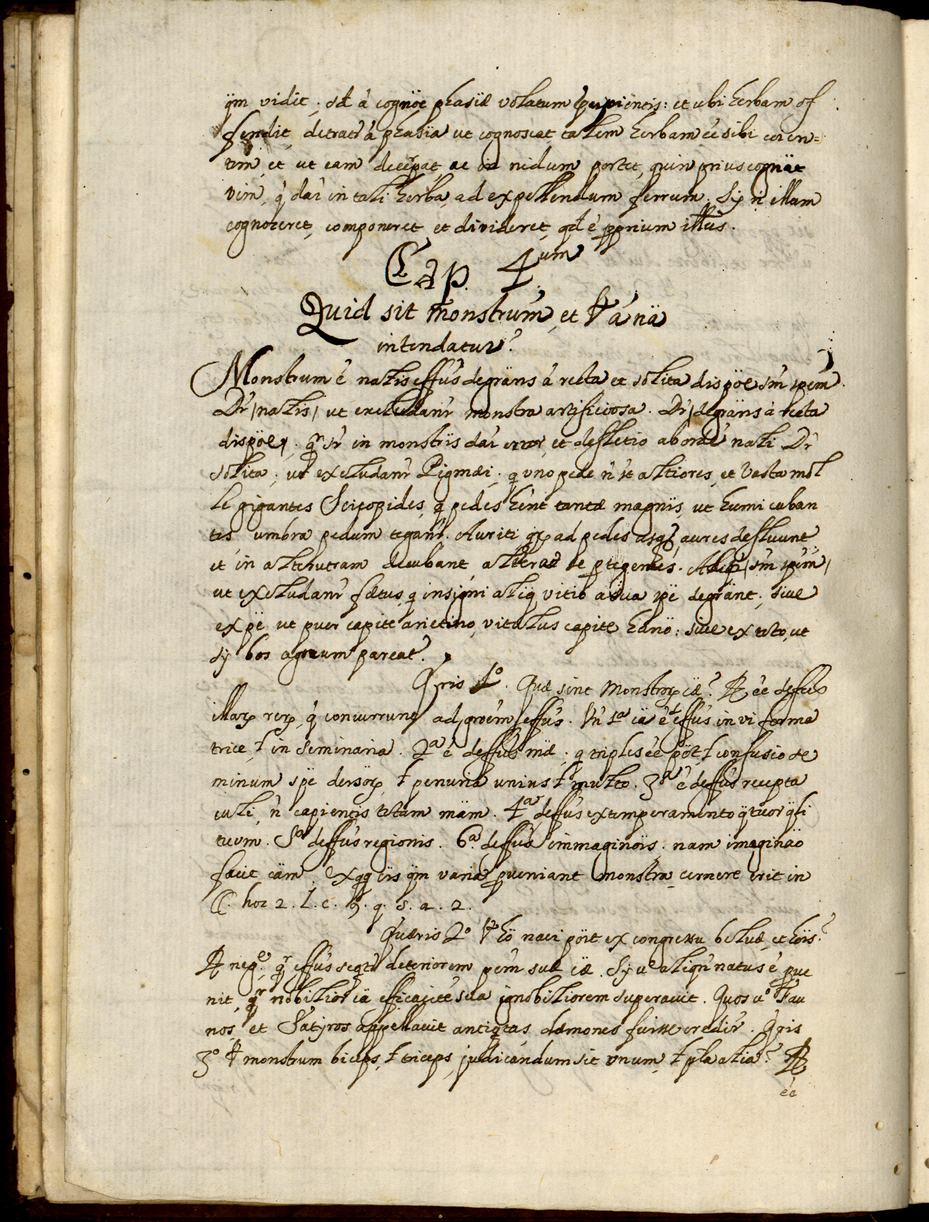 qm vidit; sd à cognõe phasiæ volatum : et ubi herbam of
fendit, detratr à phasia ut cognoscat talem herbam ee sibi conven-
tem, et ut eam decerpat, ac in nidum portet, quin prius cognãt
vim, q̃ dar̃ in tali herba ad expellendum ferrum. Sy n̄ illam
cognoceret, componeret et divideret, qd ē pprium illius.
Cap. 4um
Quid sit monstrum, et à nã
intendatur?
Monstrum ē natis effus degrãns à recta et solita dispõe sm spem.
Dr, natis, ut excludanr monstra artificiosa. Dr, degrãns à recta
dispõe, qr sr in monstris dar error, et defletio ab ordē nati. Dr
solita, ut excludanr Pigmæi, q uno pede n̄ st altiores, et vasta mol
le gigantes Scicopides, q pedes hẽnt tantæ magnis, ut humi cuban
tes umbra pedum tegant. Auriti qr ad pedes usq aures defluunt
et in alterutram decubant, altera se ptegentes. , sm spem,
ut excludanr fætus, q insigni aliq vitio à sua spe degrãnt; sive
ex pe, ut puer capite arietino, vitulus capite hdno: sive ex toto, ut
sy bos agnum pareat.
Qris 1o. Quæ sint monstror cæ? R ee defus
illar rer, q concurrunt ad grõem effus. Vn 1a cã ē effus in vi forma
trice, t in seminaria. 2a ē deffus mæ, q triplr ee põt t confusio se
minum spe dersor, t penuria unius t multo. 3a ē deffus recepta
culi, n̄ capientis totam mãm. 4a deffus ex temperamento qtuor qli
tuom. 5a deffus regionis. 6a deffus immaginõis. nam imaginão
facit cãm. Ex qq iis qm varia pueniant monstra cernere erit in
C. hoc 2. l. c. 9. q. 5. a. 2.
Quæris 2o hõ nasi põit ex congressu beluæ, et hõis?
R nege. qr effus seqtr deteriorem pem suæ cæ. Sy ve aliqn natus ē pue
nit, qr nobilior cã efficacite sua ignobiliorem superavit. Quos vo Fau
nos, et Satyros appellavit antiqtas dæmones fuisse credir. Qris
3o monstrum biceps, t triceps, judicandum sit unum, t pla alia? R
ee